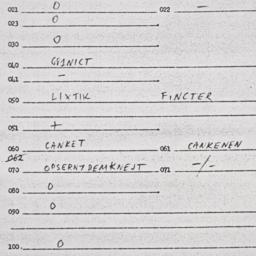 021 0 022 —
023 0
030 0
040
041 —
050 LIXTIK FINCTER
051 +
060 CANKET 061 CANKENEN
062
070 071 -/-
080 0
090 0
100. 0